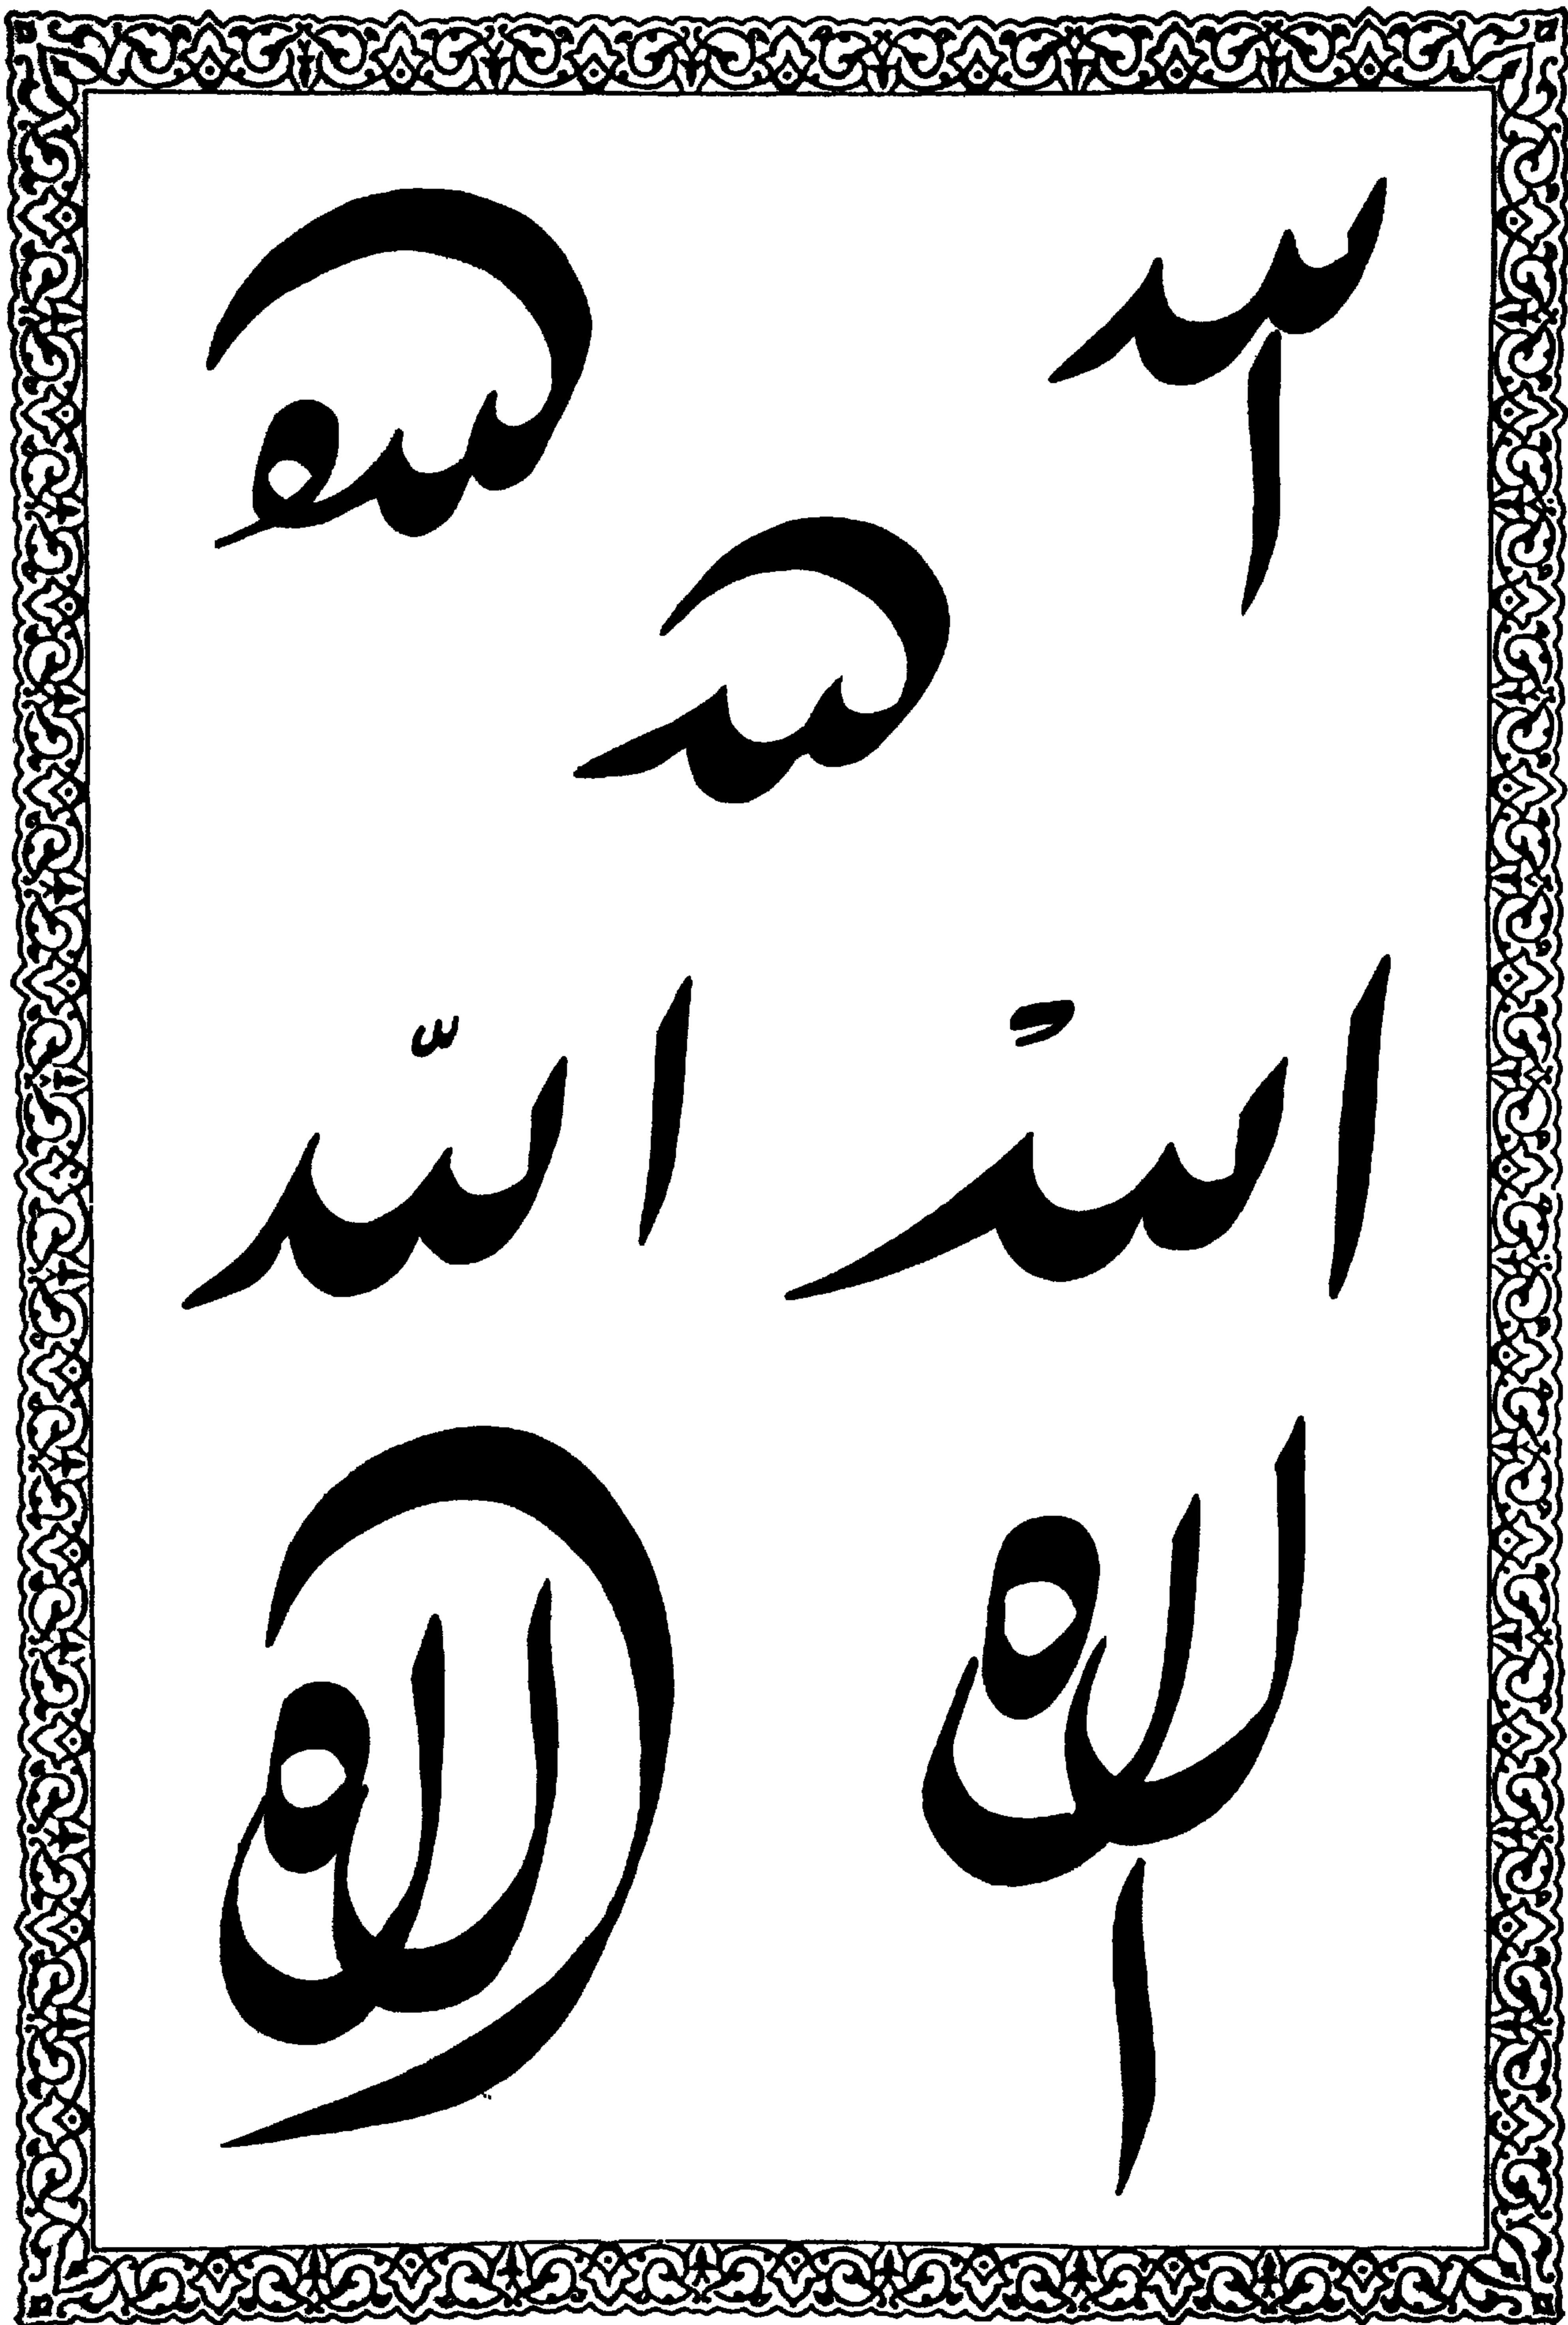 الله الله
الله
الله الله
الله الله